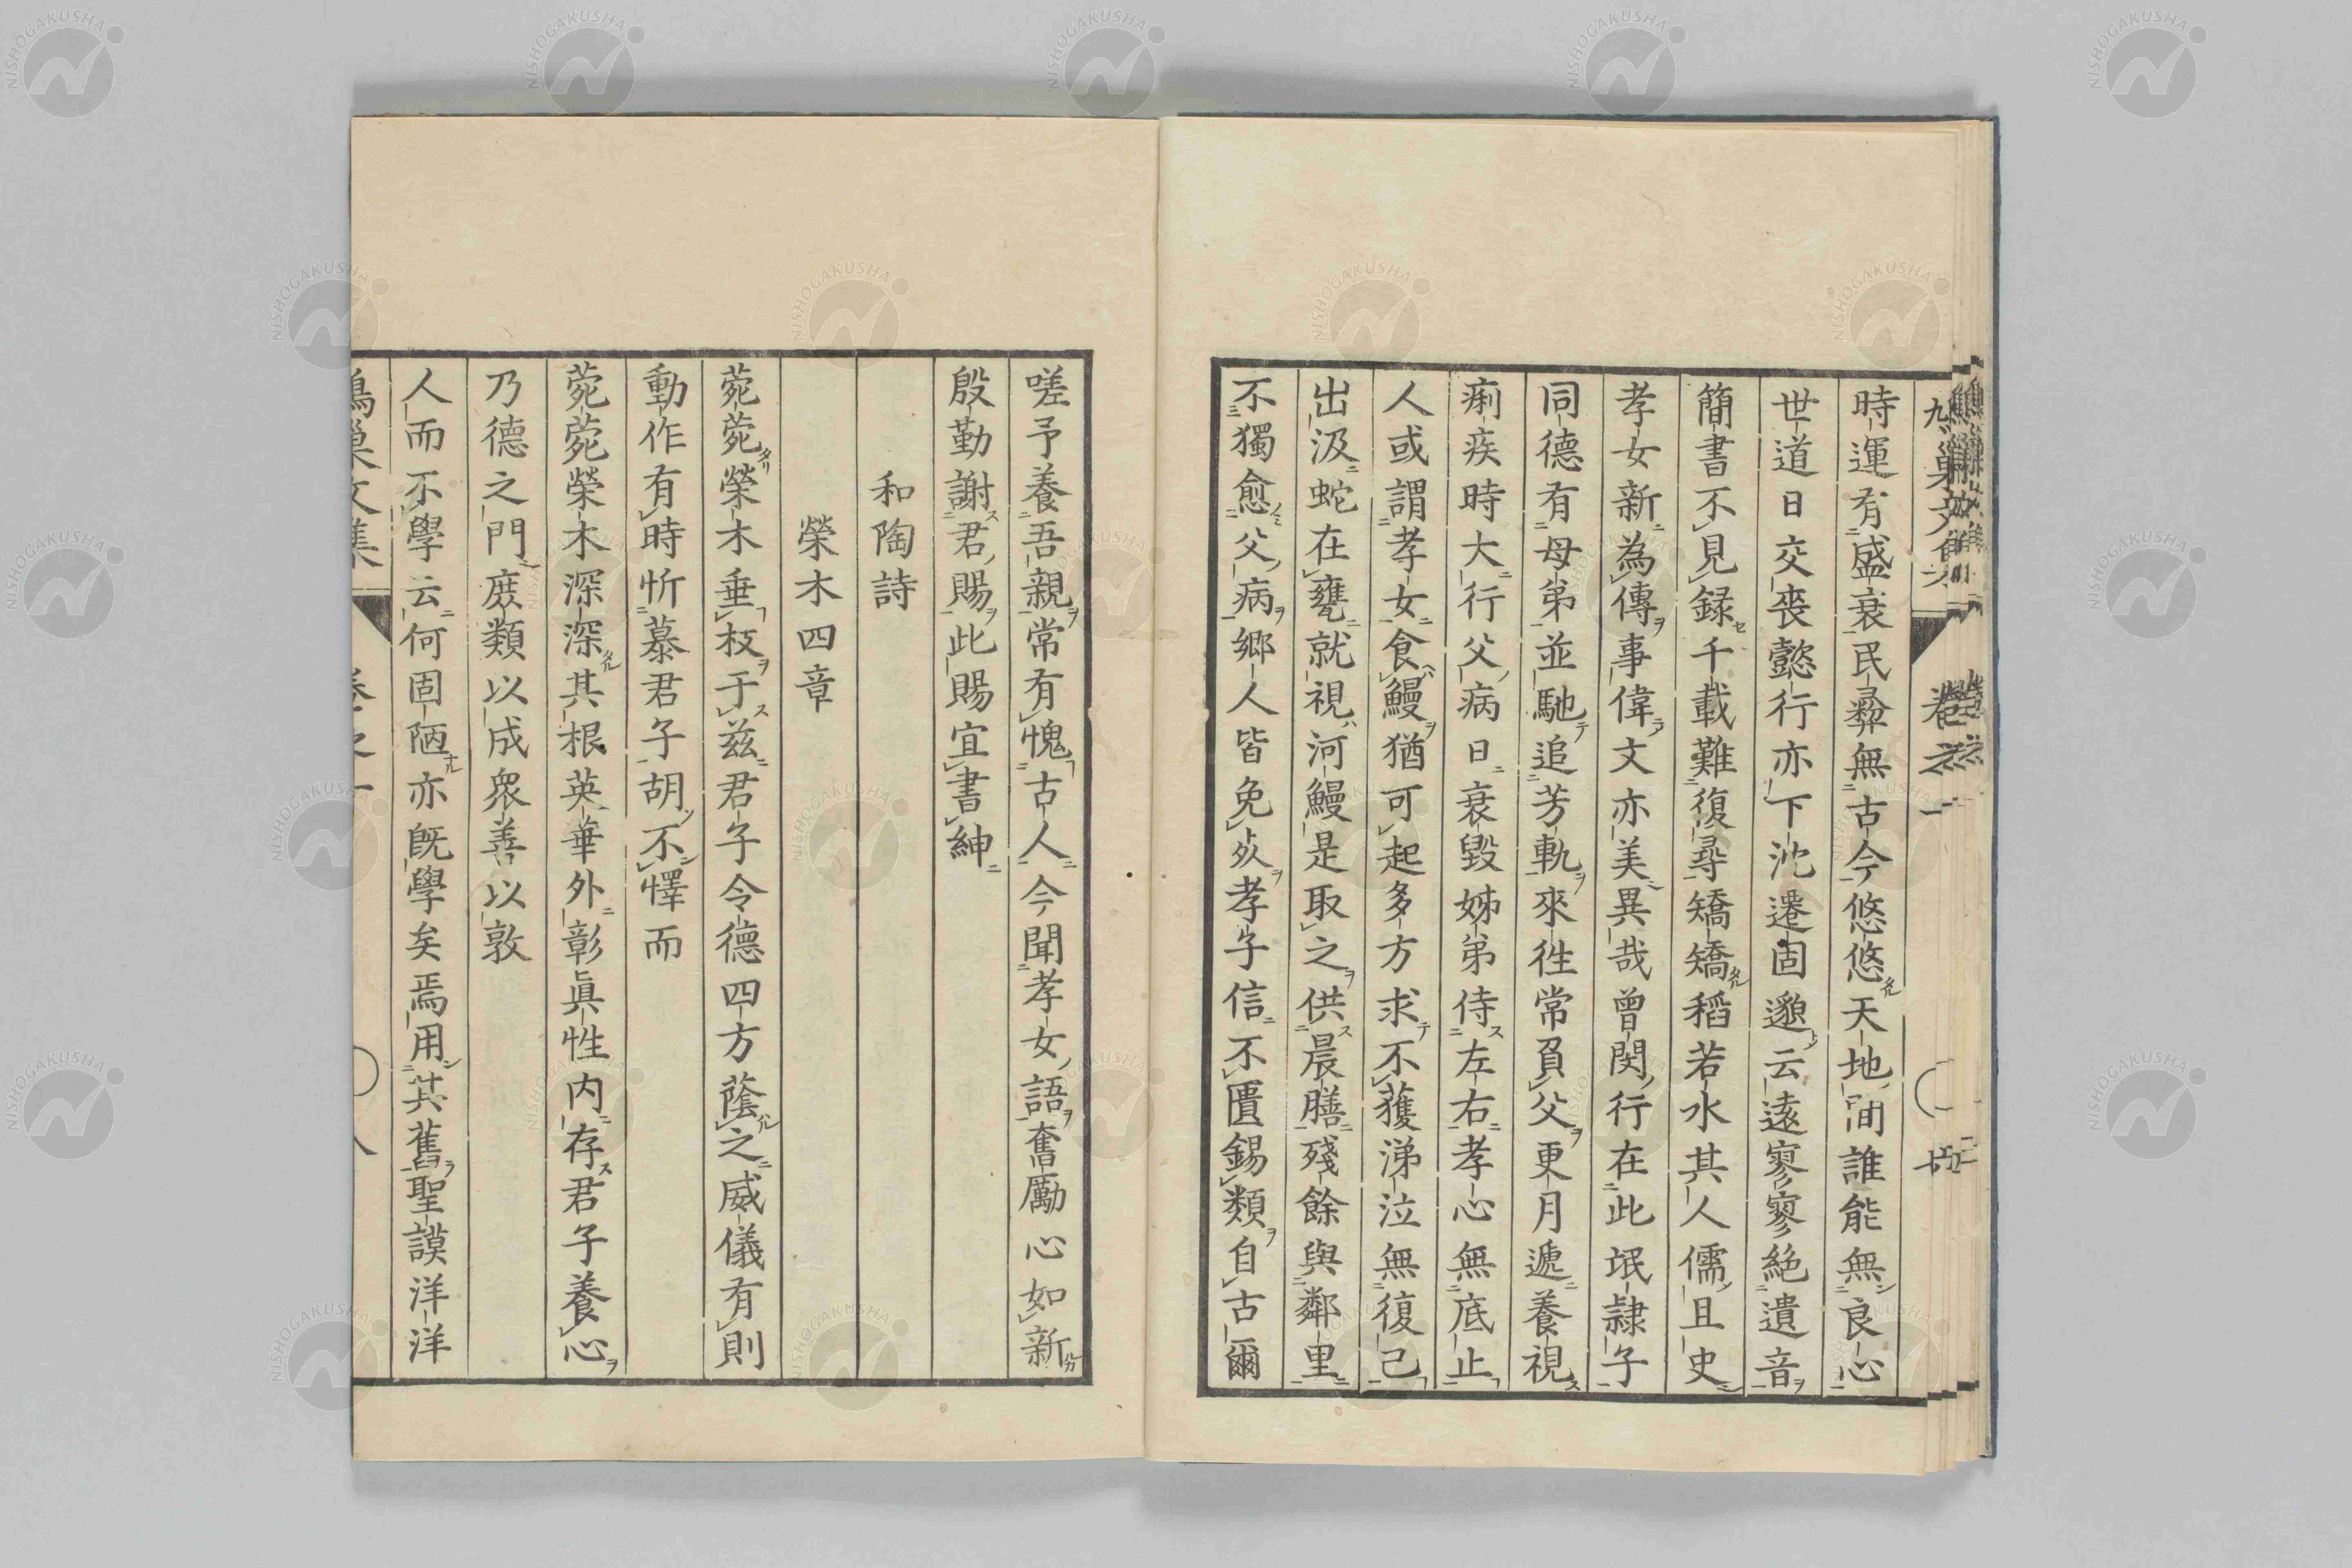 時運有盛衰民彝無古今悠悠天地間誰能無良心
世道日交喪懿行亦下沈遷固邈云遠寥寥絶遺音
簡書不見録千載難復尋矯矯稻若水其人儒且史
孝女新為傳事偉文亦美異哉曾閔行在此氓隷子
同德有母弟並馳追芳軌來徃常負父更月遞養視
痢疾時大行父病日衰毀姊弟侍左右孝心無底止
人或謂孝女食鰻猶可起多方求不獲涕泣無復已
出汲蛇在甕就視河鰻是取之供晨膳殘餘與鄰里
不獨愈父病鄉人皆免死孝子信不匱錫類自古爾
嗟予養吾親常有愧古人今聞孝女語奮厲心如新
殷勤謝君賜此賜宜書紳
和陶詩
榮木四章
菀菀榮木垂枝于茲君子令德四方蔭之威儀有則
動作有時忻慕君子胡不懌而
菀菀榮木深深其根英華外彰眞性内存君子養心
乃德之門庻類以成衆善以敦
人而不學云何固陋亦旣學矣焉用其舊聖謨洋洋